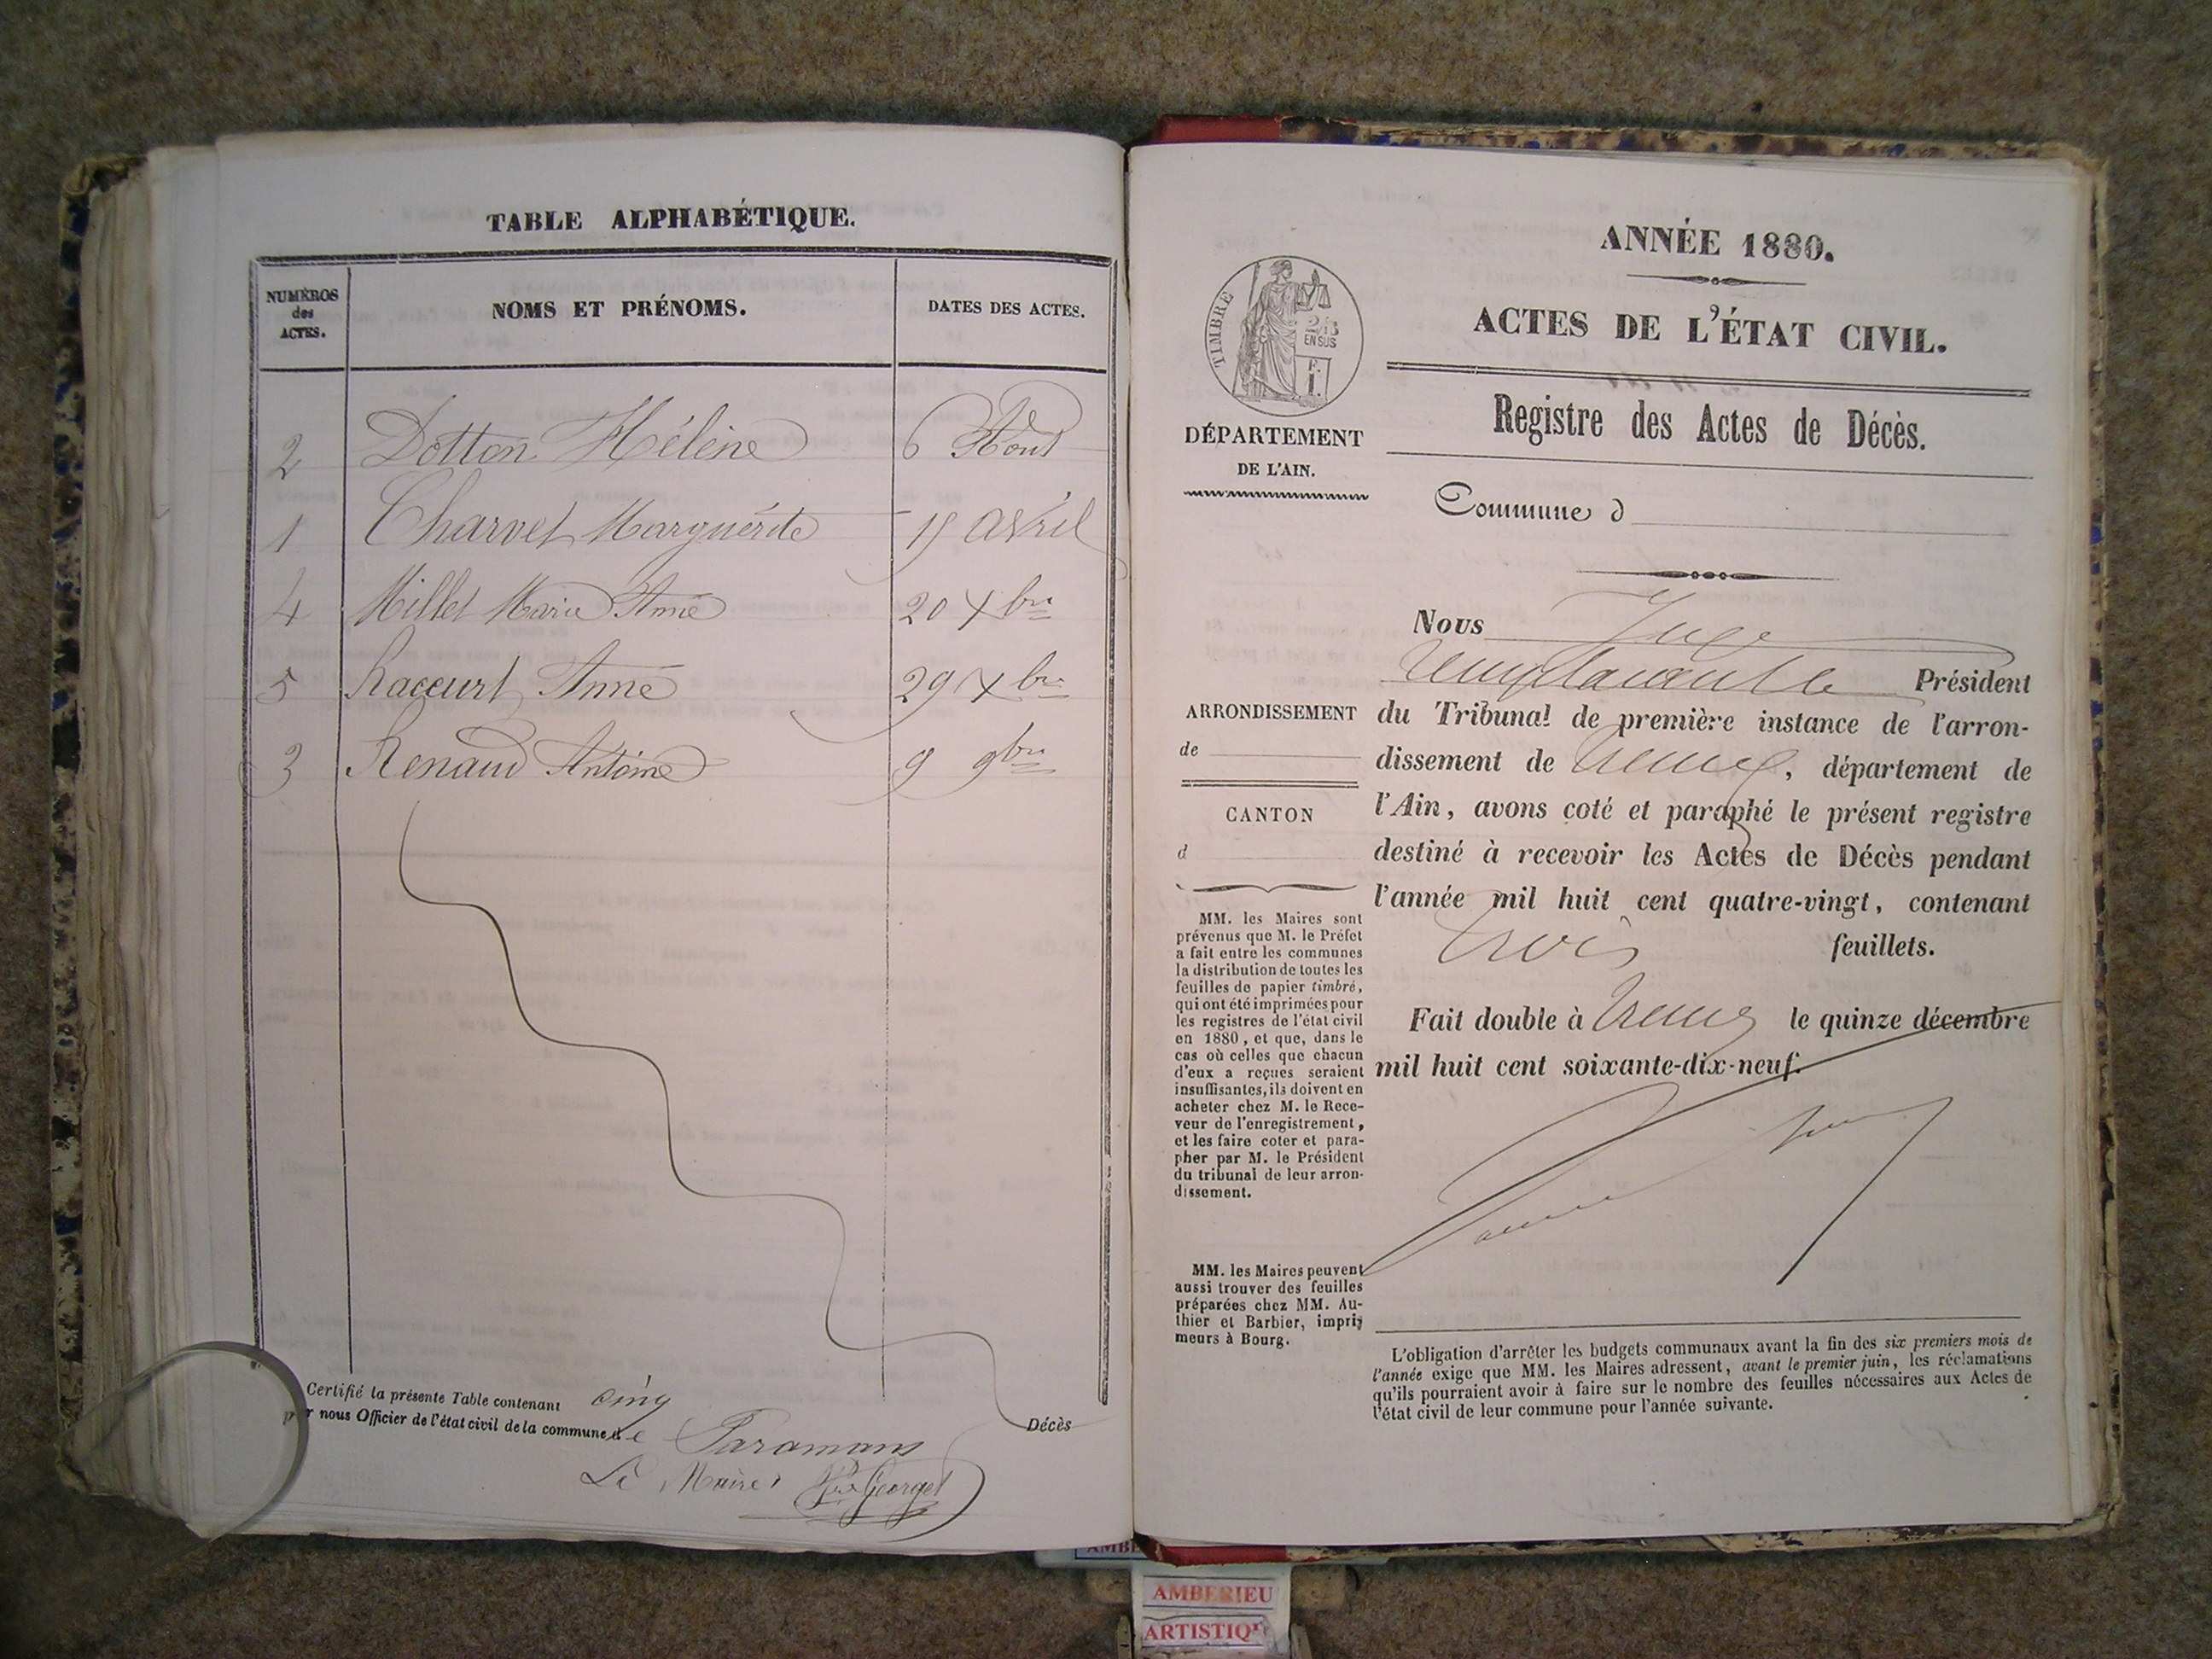 TABLE ALPHABÉTIQUE.
NUMÉROS des ACTES.
NOMS ET PRÉNOMS.
DATES DES ACTES.
2 Dotton Hélène 6 Aout
1 Charvet Marguérite 15 avril
4 Millet Marie Anne 20 Xbre
5 Raccurt Anne 29 Xbre
3 Renaud Antoine 9 9bre
Certifié la présente Table contenant cinq Décès
par nous Officier de l'état civil de la commune de Paramans
Le Maire Georget
ANNÉE 1880.
ACTES DE L'ÉTAT CIVIL.
TIMBRE
EN SUS
DÉPARTEMENT
DE L'AIN.
Registre des Actes de Décès.
Commune d
Nous Juge
Président
du Tribunal de première instance de l'arron-
dissement de Trévoux, département de
l'Ain, avons coté et paraphé le présent registre
destiné à recevoir les Actes de Décès pendant
l'année mil huit cent quatre-vingt, contenant
trois feuillets.
Fait double à Trévoux le quinze décembre
mil huit cent soixante-dix-neuf.
ARRONDISSEMENT
de
CANTON
d
MM. les Maires sont
prévenus que M. le Préfet
a fait entre les communes
la distribution de toutes les
feuilles de papier timbré,
qui ont été imprimées pour
les registres de l'état civil
en 1880, et que, dans le
cas où celles que chacun
d'eux a reçues seraient
insuffisantes, ils doivent en
acheter chez M. le Rece-
veur de l'enregistrement,
et les faire coter et para-
pher par M. le Président
du tribunal de leur arron-
dissement.
MM. les Maires peuvent
aussi trouver des feuilles
préparées chez MM. Au-
thier et Barbier, impri-
meurs à Bourg.
L'obligation d'arrêter les budgets communaux avant la fin des six premiers mois de
l'année exige que MM. les Maires adressent, avant le premier juin, les réclamations
qu'ils pourraient avoir à faire sur le nombre des feuilles nécessaires aux Actes de
l'état civil de leur commune pour l'année suivante.
AMBERIEU
ARTISTIQ